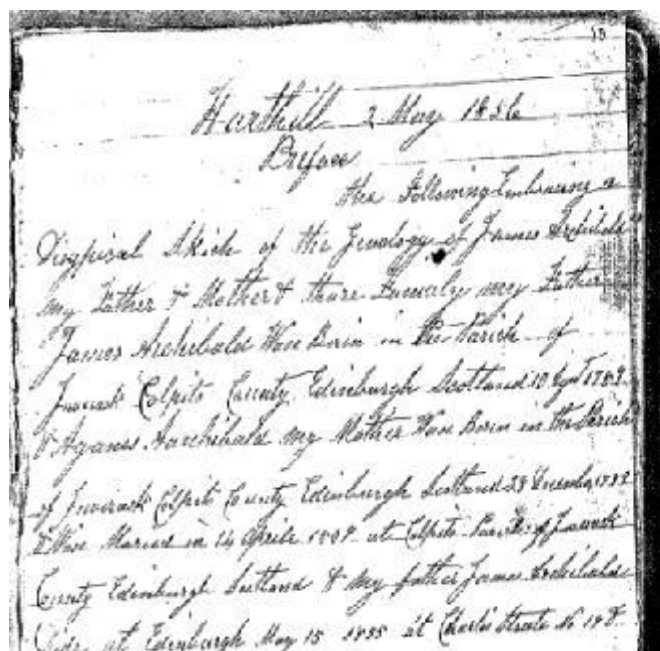 13
Harthill 2 May 1856
Before
the Following Embracing a
Skich of the Jenology of James Archibald
my Father & Mother & thare my Father
James Archibald Was Born in the Parish of
Colpits County Edinburgh Scotland 10 1782
& Aganes Aarchibald my Mother Was Born in the Parish
of Colpits County Edinburgh Scotland 28 December
& Was Maried in 14 Aprile at Colpits
County Edinburgh Scotland & my father James Archibald
Died at Edinburgh May 15 1855 at Charles Streete No